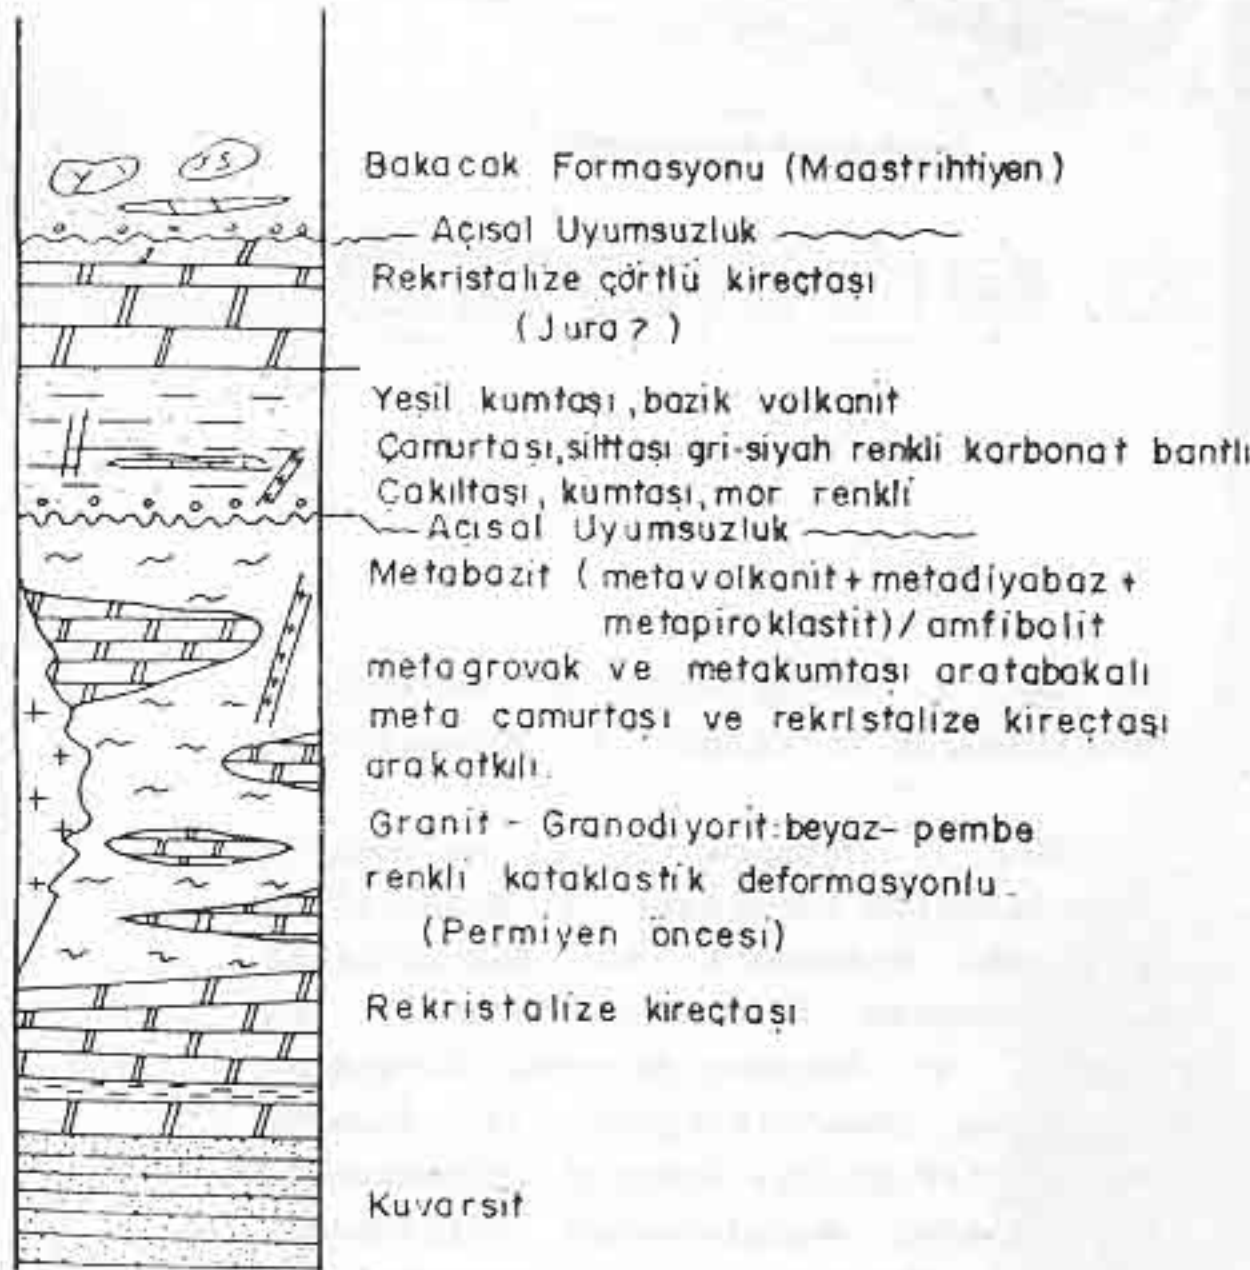 Bakacak Formasyonu (Maastrihtiyen)
Açısal Uyumsuzluk
Rekristalize çörtlü kireçtaşı
(Jura?)
Yeşil kumtaşı, bazik volkanit
Çamurtaşı, silttaşı gri-siyah renkli karbonat bantlı
Çakıltaşı, kumtaşı, mor renkli
Açısal Uyumsuzluk
Metabazit (metavolkanit + metadiyabaz +
metapiroklastit) / amfibolit
metagrovak ve metakumtaşı aratabakalı
meta çamurtaşı ve rekristalize kireçtaşı
arakatkılı.
Granit - Granodiyorit: beyaz - pembe
renkli kataklastik deformasyonlu.
(Permiyen öncesi)
Rekristalize kireçtaşı
Kuvarsit